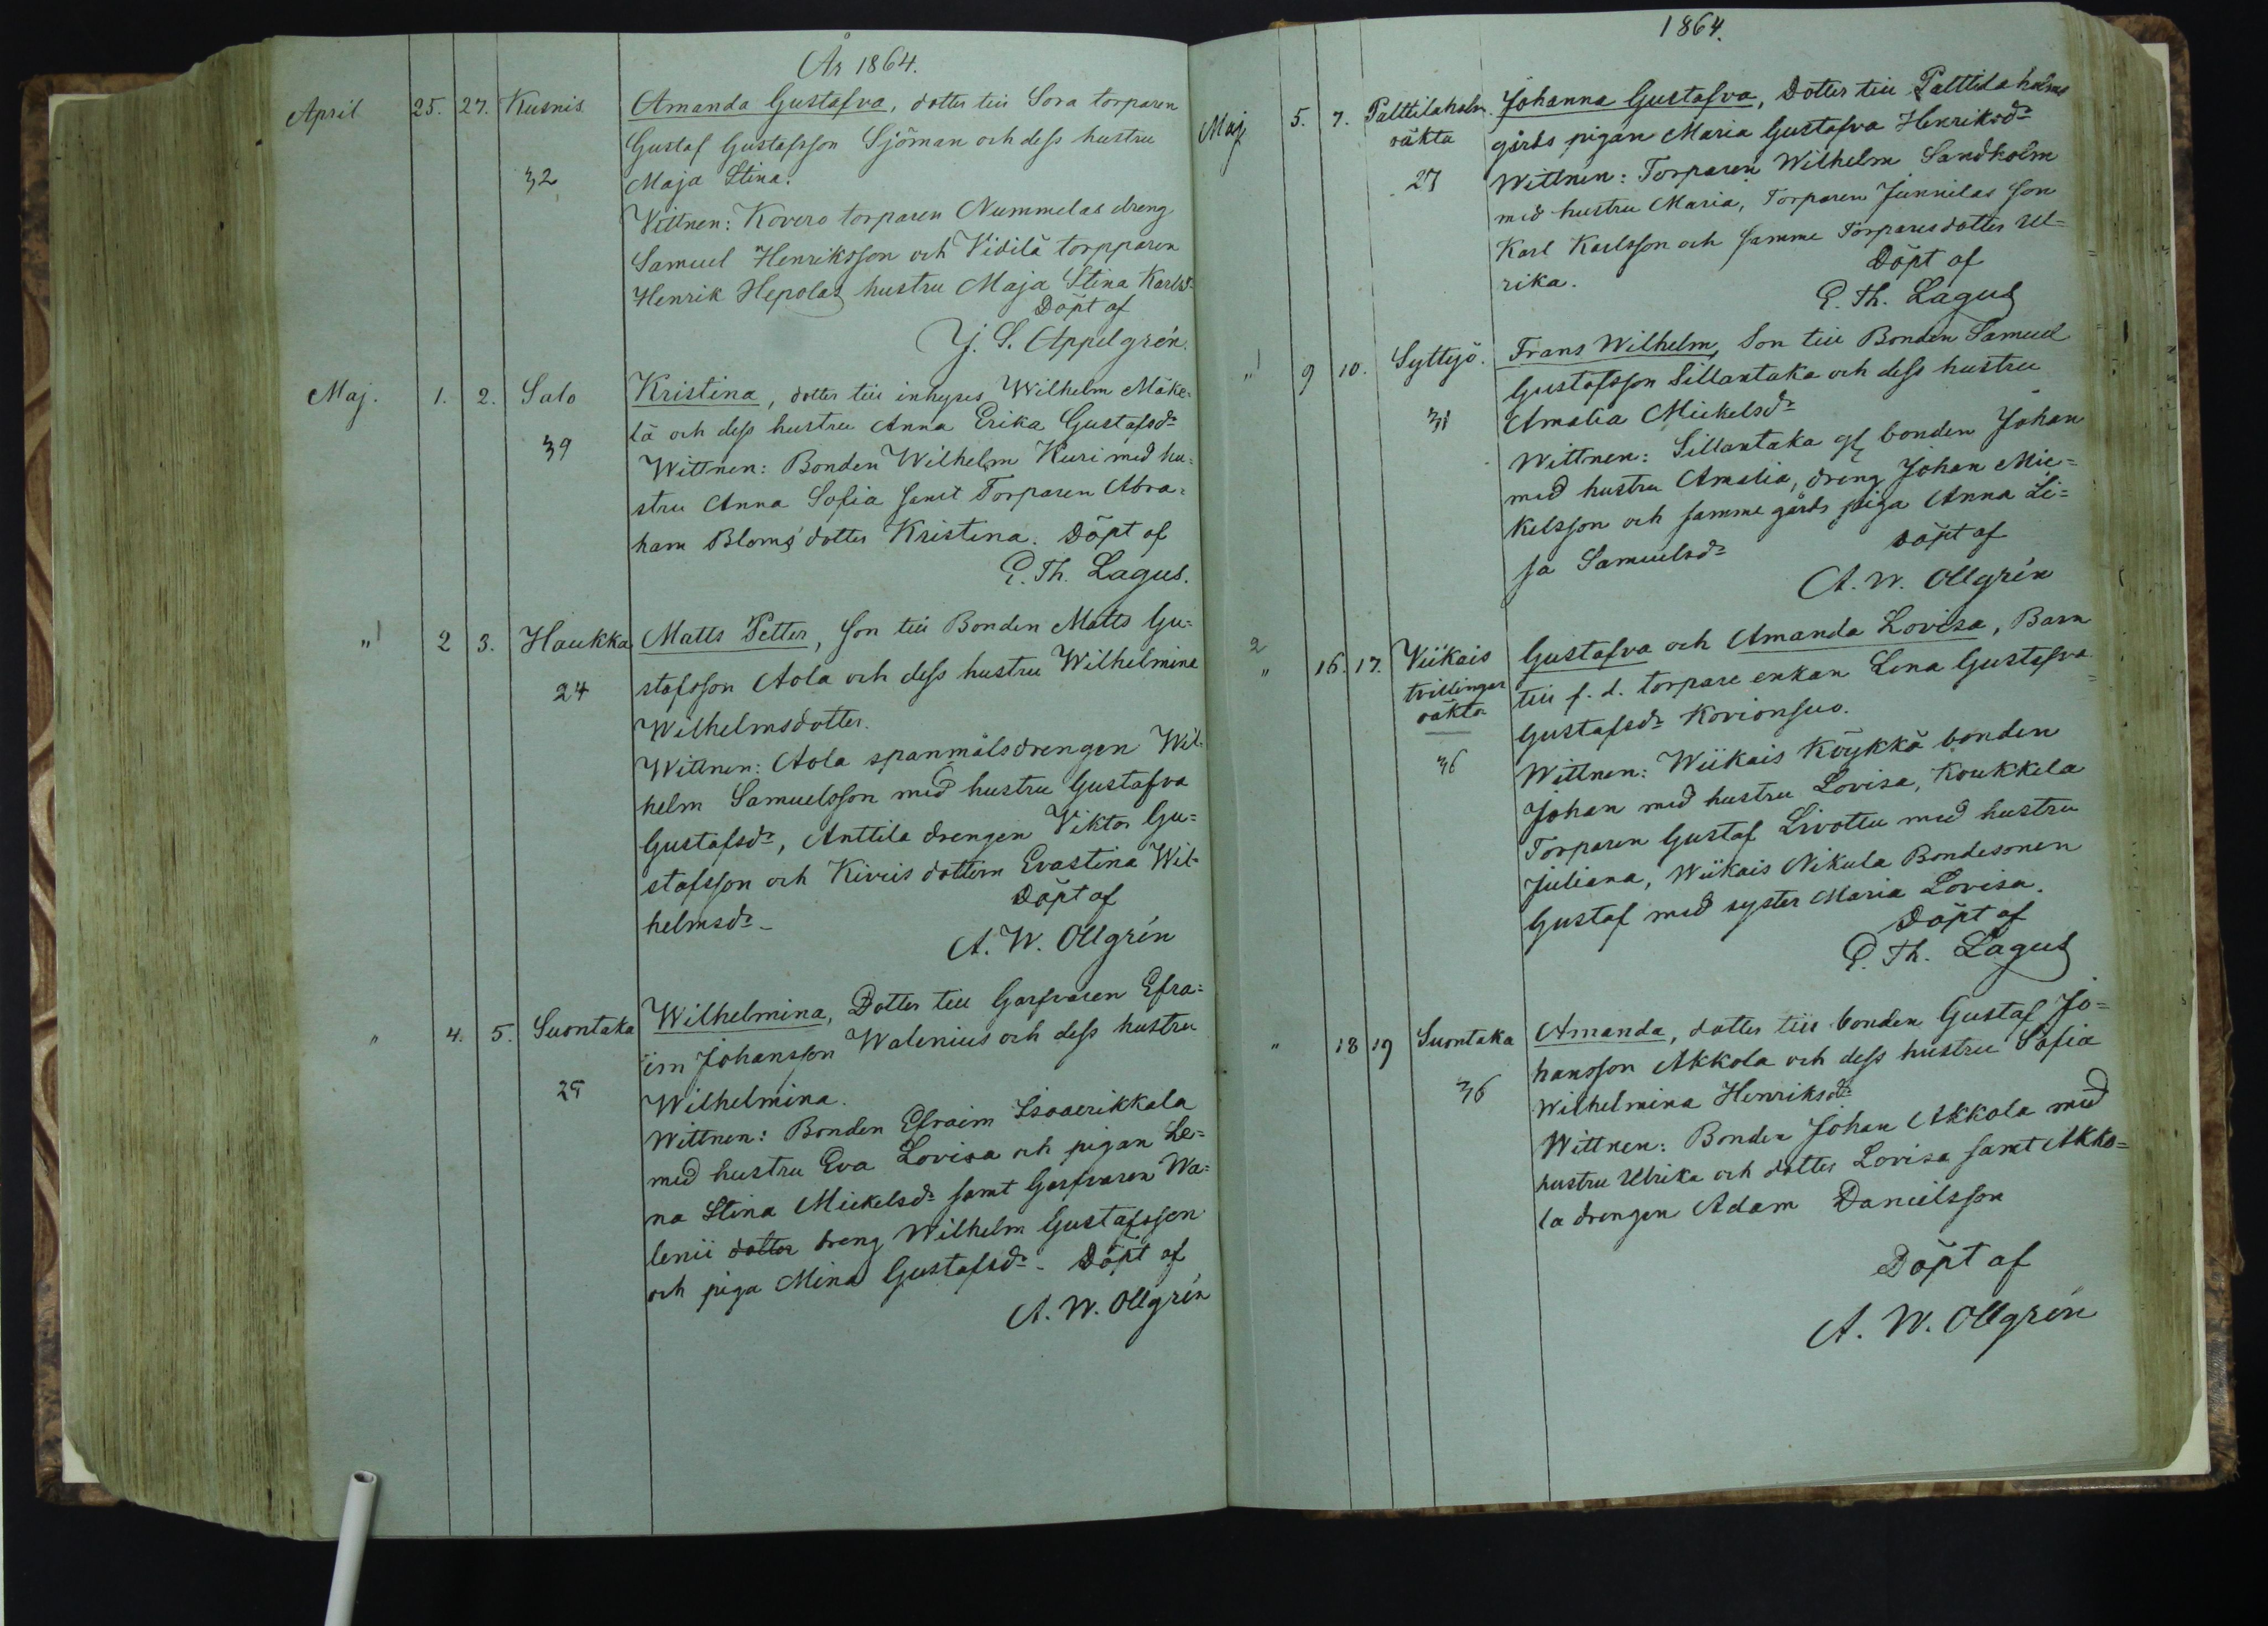 År 1864.
April 25. 27. Kusnis Amanda Gustafva, dotter till Sora torparen
Gustaf Gustafsson Sjöman och dess hustru
32 Maja Stina.
Vittnen: Kovero torparen Nummelas dreng
Samuel Henriksson och Vidilä torpparen
Henrik Hepolas hustru Maja Stina Karlsdr
Döpt af
J. S. Appelgrén.
Maj. 1. 2. Salo Kristina, dotter till inhyses Wilhelm Mäke=
lä och dess hustru Anna Erika Gustafsdr
39 Wittnen: Bonden Wilhelm Kuri med hu=
stru Anna Sofia samt Torparen Abra=
ham Bloms dotter Kristina. Döpt af
E. Th. Lagus.
" 2 3. Haukka Matts Petter, son till Bonden Matts Gu=
24 stafsson Aola och dess hustru Wilhelmina
Wilhelmsdotter.
Wittnen: Aola spanmålsdrengen Wil=
helm Samuelsson med hustru Gustafva
Gustafsdr, Anttila drengen Viktor Gu=
stafsson och Kiviis dottern Evastina Wil=
helmsdr. Döpt af
A. W. Ollgrén
" 4. 5. Suontaka Wilhelmina, Dotter till Garfvaren Efra=
im Johansson Walenius och dess hustru
25 Wilhelmina.
Wittnen: Bonden Efraim Isoaerikkala
med hustru Eva Lovisa och pigan Le=
na Stina Mickelsdr samt Garfvaren Wa=
lenii dotter dreng Wilhelm Gustafsson
och piga Mina Gustafsdr. Döpt af
A. W. Ollgrén
1864.
Maj 5. 7. Palttilaholm Johanna Gustafva, Dotter till Palttila holms
oäkta gårds pigan Maria Gustafva Henriksdr
27 Wittnen: Torparen Wilhelm Sandholm
med hustru Maria, Torparen Junnilas son
Karl Karlsson och samme Torpares dotter Ul=
rika. Döpt af
E. Th. Lagus
" 9 10. Syttyö. Frans Wilhelm, Son till Bonden Samuel
Gustafsson Sillantaka och dess hustru
31 Amalia Mickelsdr
Wittnen: Sillantaka bonden Johan
med hustru Amalia, dreng Johan Mic=
kelsson och samme gårds piga Anna Li=
sa Samuelsdr Döpt af
A. W. Ollgrén
2
" 16. 17. Viikais Gustafva och Amanda Lovisa, Barn
tvillingar till f. d. torpare enkan Lena Gustafva
oäkta Gustafsdr Kovionsuo.
36 Wittnen: Wiikais Köykkä bonden
Johan med hustru Lovisa, Koukkela
Torparen Gustaf Livottu med hustru
Juliana, Wiikais Nikula Bondesonen
Gustaf med syster Maria Lovisa.
Döpt af
E. Th. Lagus
" 18 19 Suontaka Amanda, dotter till bonden Gustaf Jo=
hansson Akkola och dess hustru Sofia
36 Wilhelmina Henriksdr
Wittnen: Bonden Johan Akkola med
hustru Ulrika och dotter Lovisa samt Akko=
la drengen Adam Danielsson
Döpt af
A. W. Ollgrén